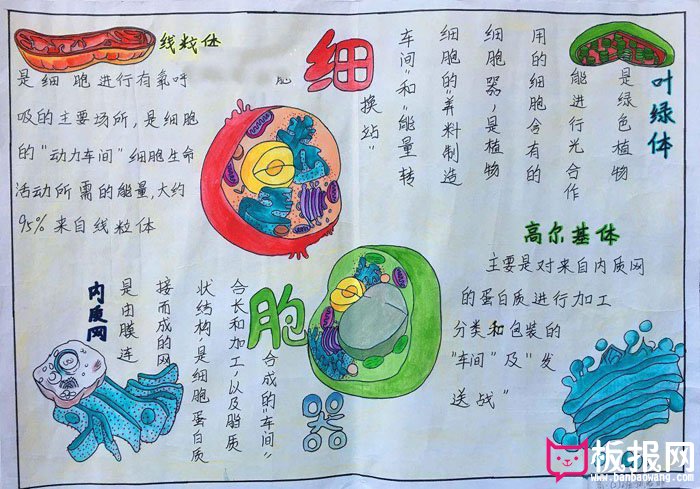 细
胞
器
线粒体
是细胞进行有氧呼
吸的主要场所，是细胞
的"动力车间"细胞生命
活动所需的能量，大约
95%来自线粒体
叶绿体
是绿色植物
能进行光合作
用的细胞含有的
细胞器，是植物
细胞的"养料制造
车间"和"能量转
换站"
内质网
是由膜连
接而成的网
状结构，是细胞蛋白质
合长和加工，以及脂质
合成的"车间"
高尔基体
主要是对来自内质网
的蛋白质进行加工
分类和包装的
"车间"及"发
送战"
板报网
www.banbaowang.com